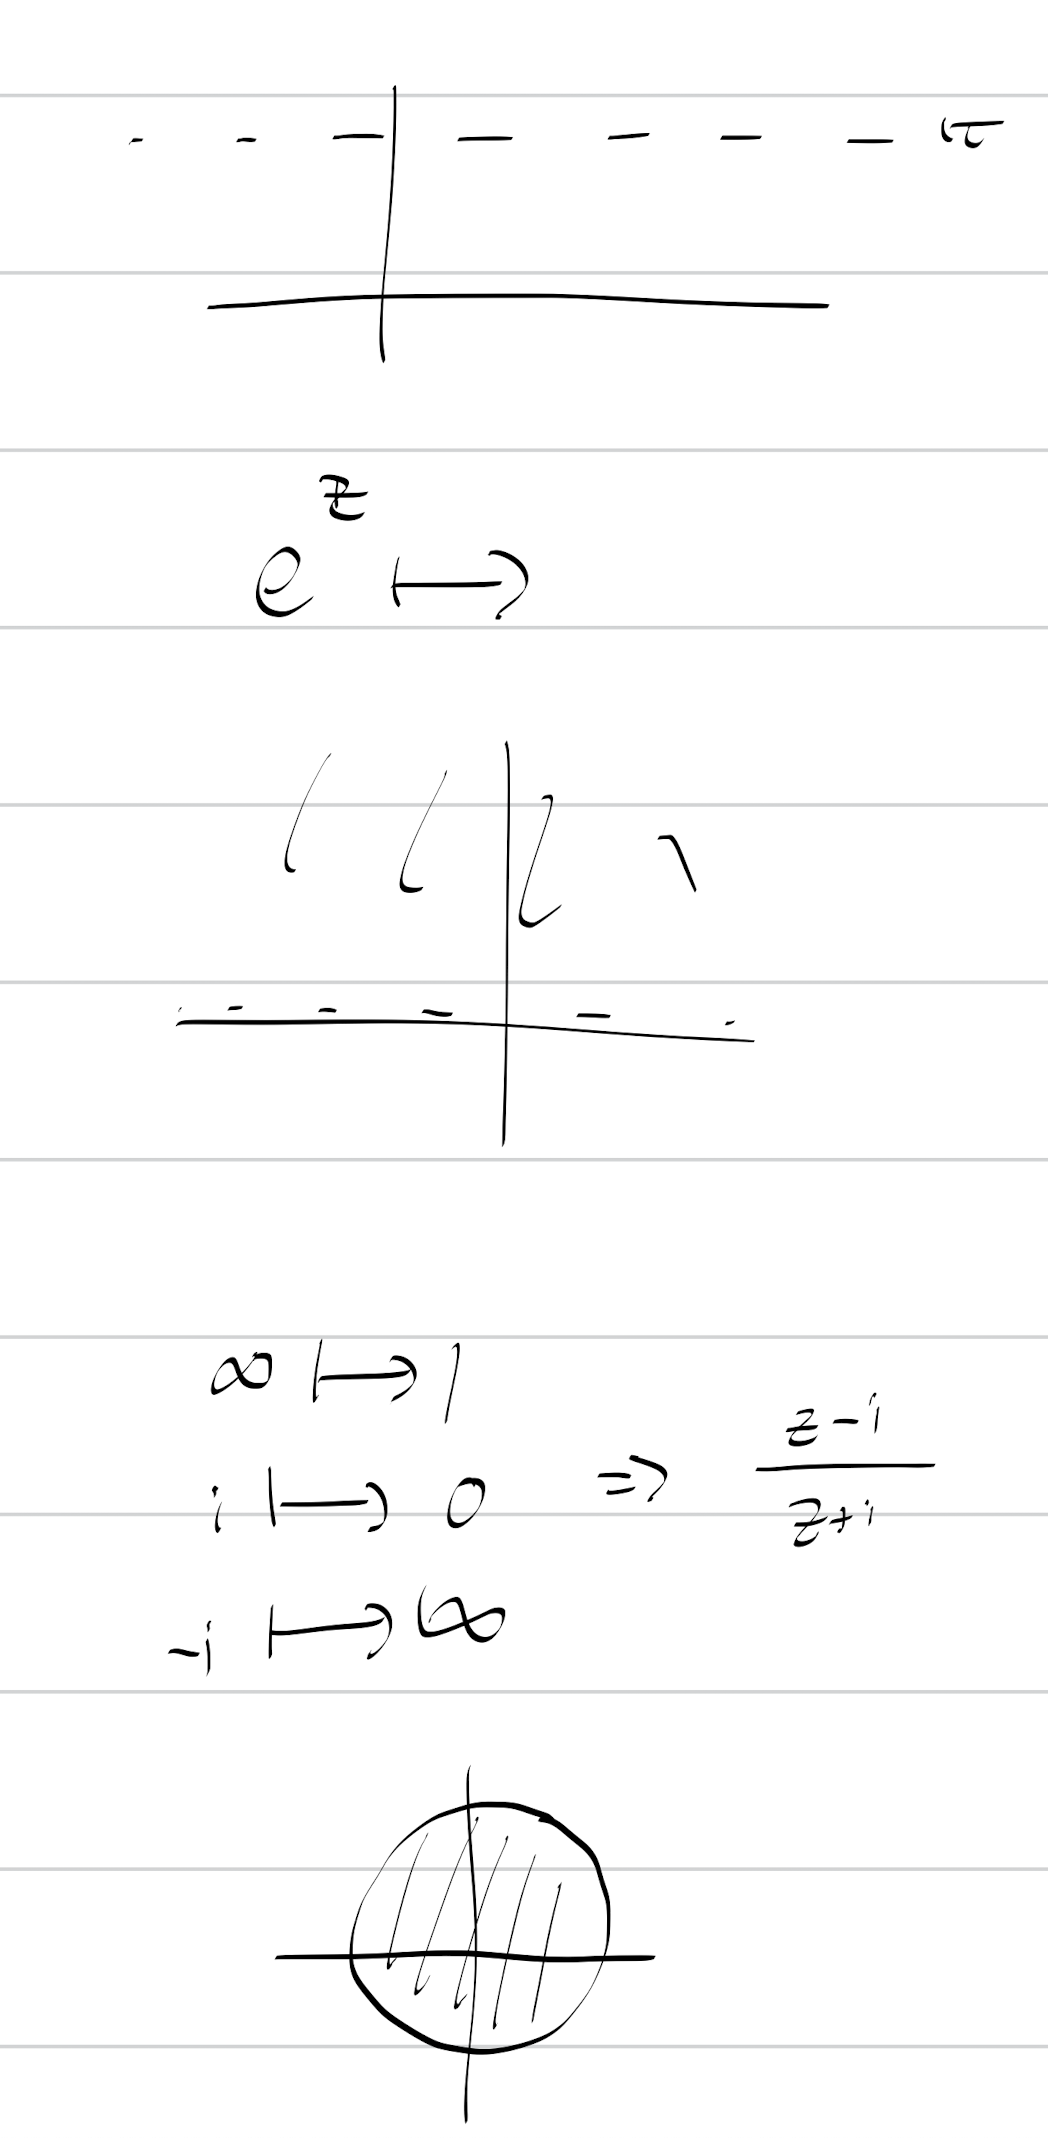 π
e^z ↦
∞ ↦ 1
i ↦ 0 ⇒ (z-i)/(z+i)
-i ↦ ∞